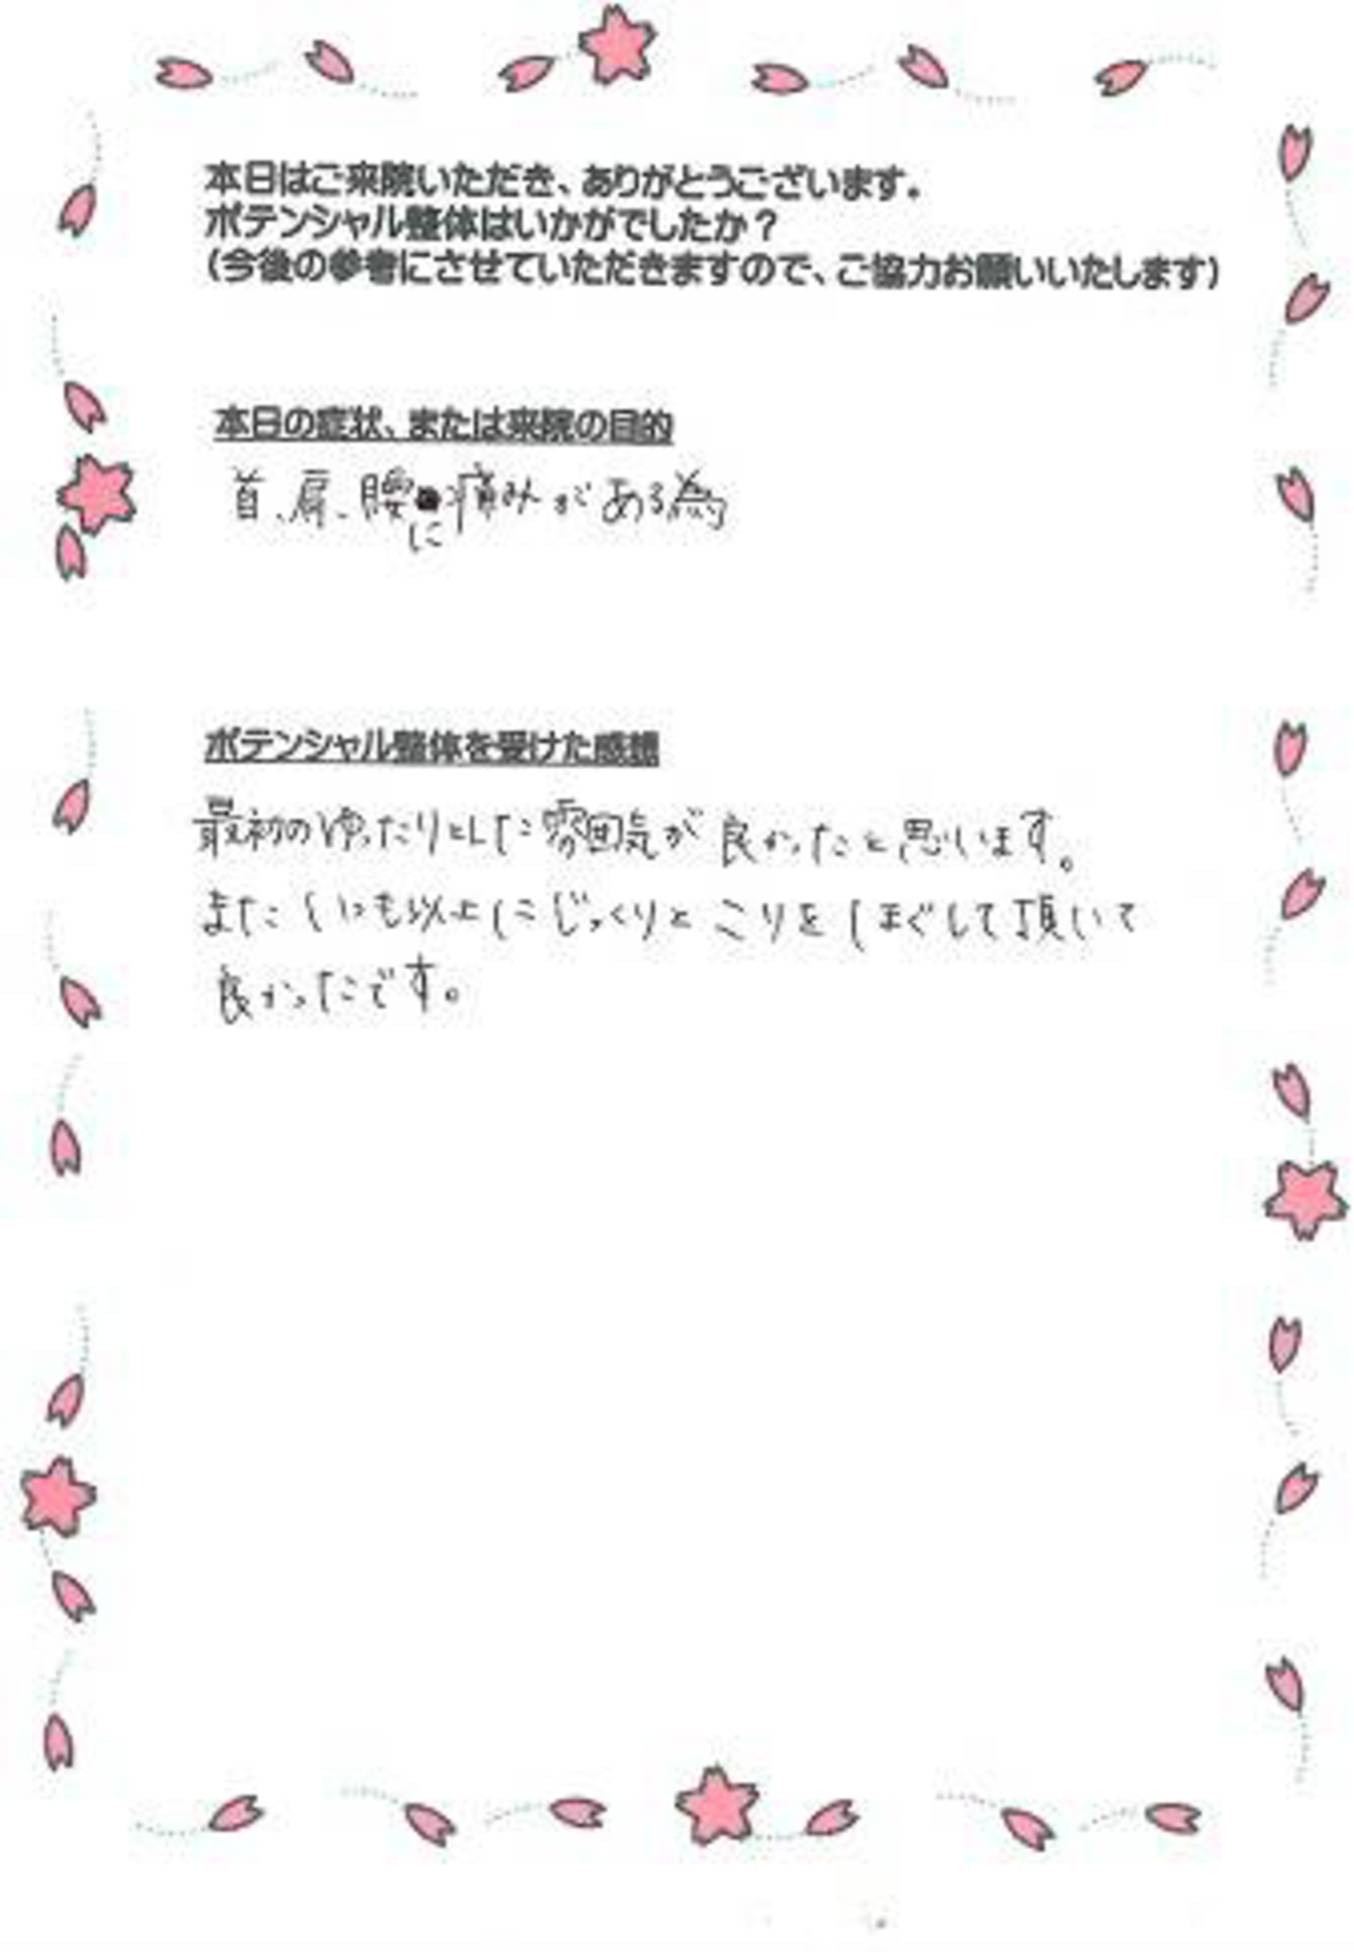 本日はご来院いただき、ありがとうございます。
ポテンシャル整体はいかがでしたか？
（今後の参考にさせていただきますので、ご協力お願いいたします）
本日の症状、または来院の目的
首、肩、腰に痛みがある為
ポテンシャル整体を受けた感想
最初のゆったりとした雰囲気が良かったと思います。
またいつも以上にじっくりとこりをほぐして頂いて
良かったです。